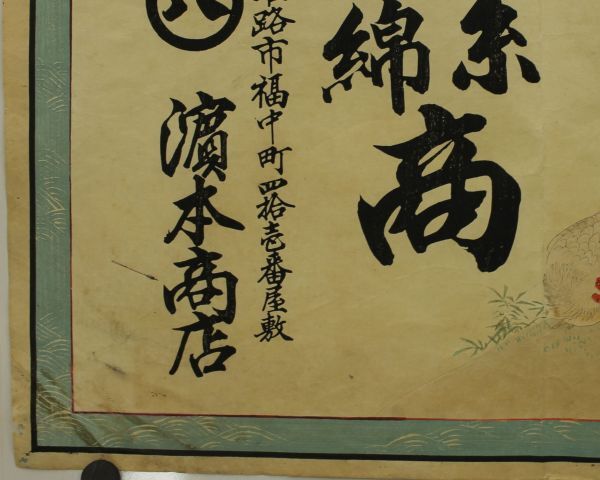 糸
綿商
路市福中町四拾壱番屋敷
八
濵本商店